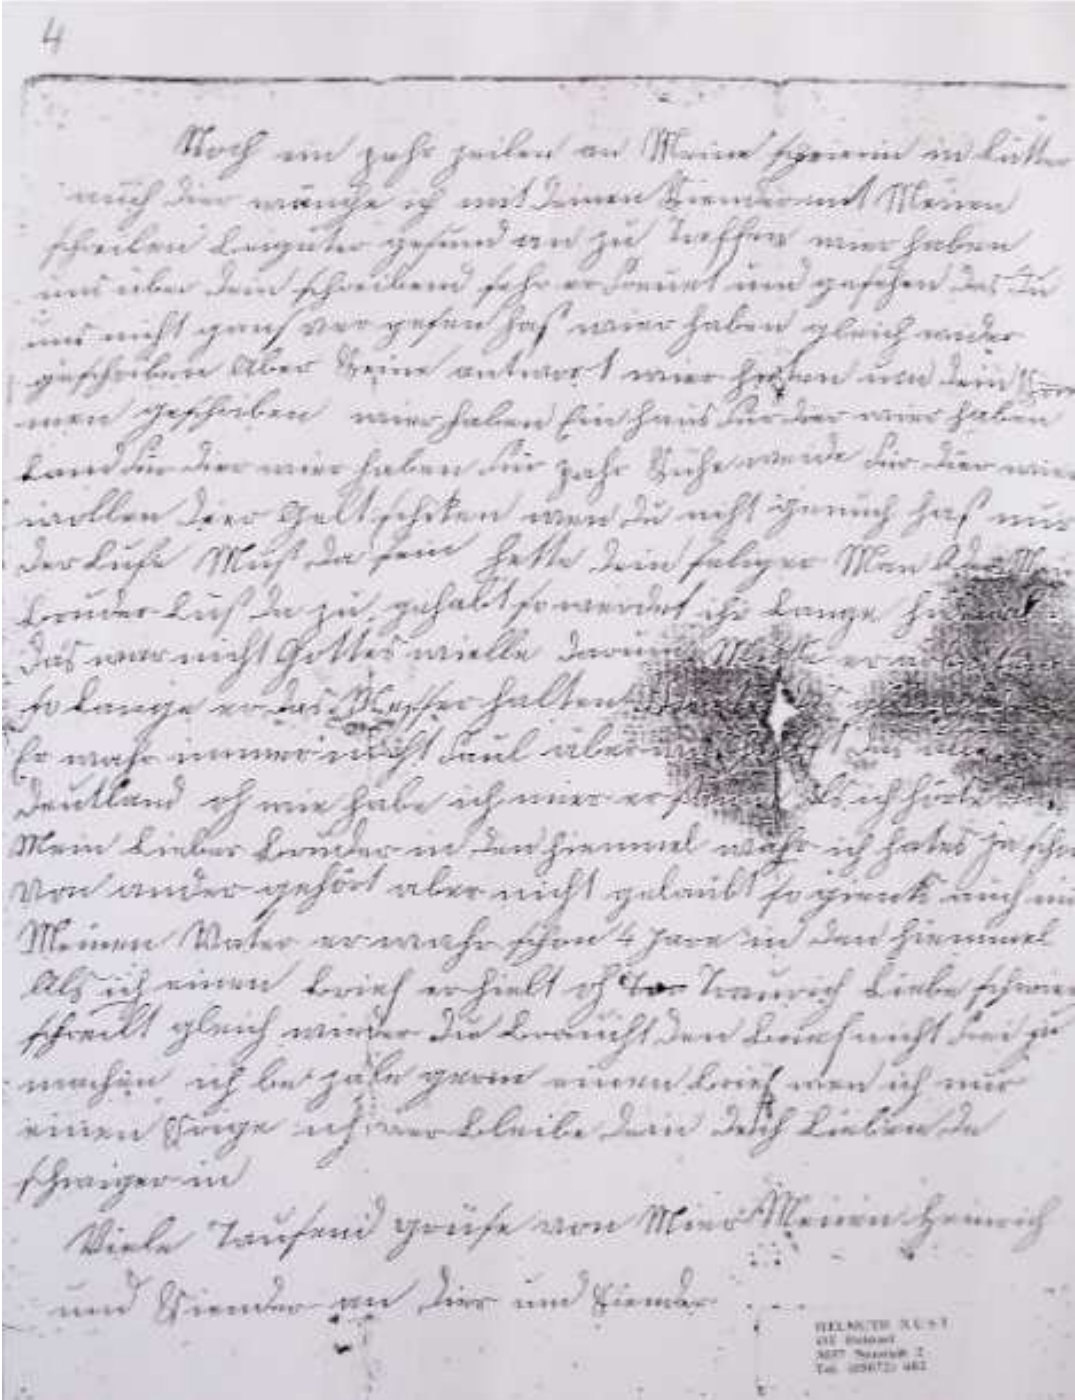 4
Noch ein pahr zeilen an Meine schwierin in Lutter
auch dier wünsche ich mit deinen Kiender mit Meinen
schreiben bei guter gesund an zu Treffen wier haben
uns über dein schreibend sehr erfreuet und gesehen das Du
uns nicht gans ver gesen hast wier haben gleich wider
geschrieben Aber Keine antwort wier hatten um dein
men geschrieben wier haben Ein haus für dier wier haben
Land für dier wier haben für pahr Kühe weide für dier wier
wollen dier Gelt schiken wen du nicht genuch hast nur
der Lust Mus da sein hette dein seliger Man oder Mein
bruder Lust da zu gehabt so werdet ihr lange hier
das war nicht Gottes wielle darum Muste er arbeiten
so Lange er das Messer halten
Er wahr immer nicht faul aber
deutland oh wie habe ich mier er als ich hörte das
Mein Lieber bruder in den hiemmel wahr ich hates ja schon
Von ander gehört aber nicht gelaubt so gienk auch mit
Meinen Vater er wahr schon 4 Jare in den hiemmel
Als ich einen brief erhielt oh Traurich Liebe schwier
schreibt gleich wieder die braucht den brief nicht frei zu
machen ich be zale gern einen brief wen ich nur
einen krige ich ver bleibe dein dich Lieben de
schwiger in
Viele Tausend grüse von Mier Meinen Heinrich
und Kiender an dier und Kiender
HELMUTH RUST
3057 Neustadt 2
Tel. (05072) 482